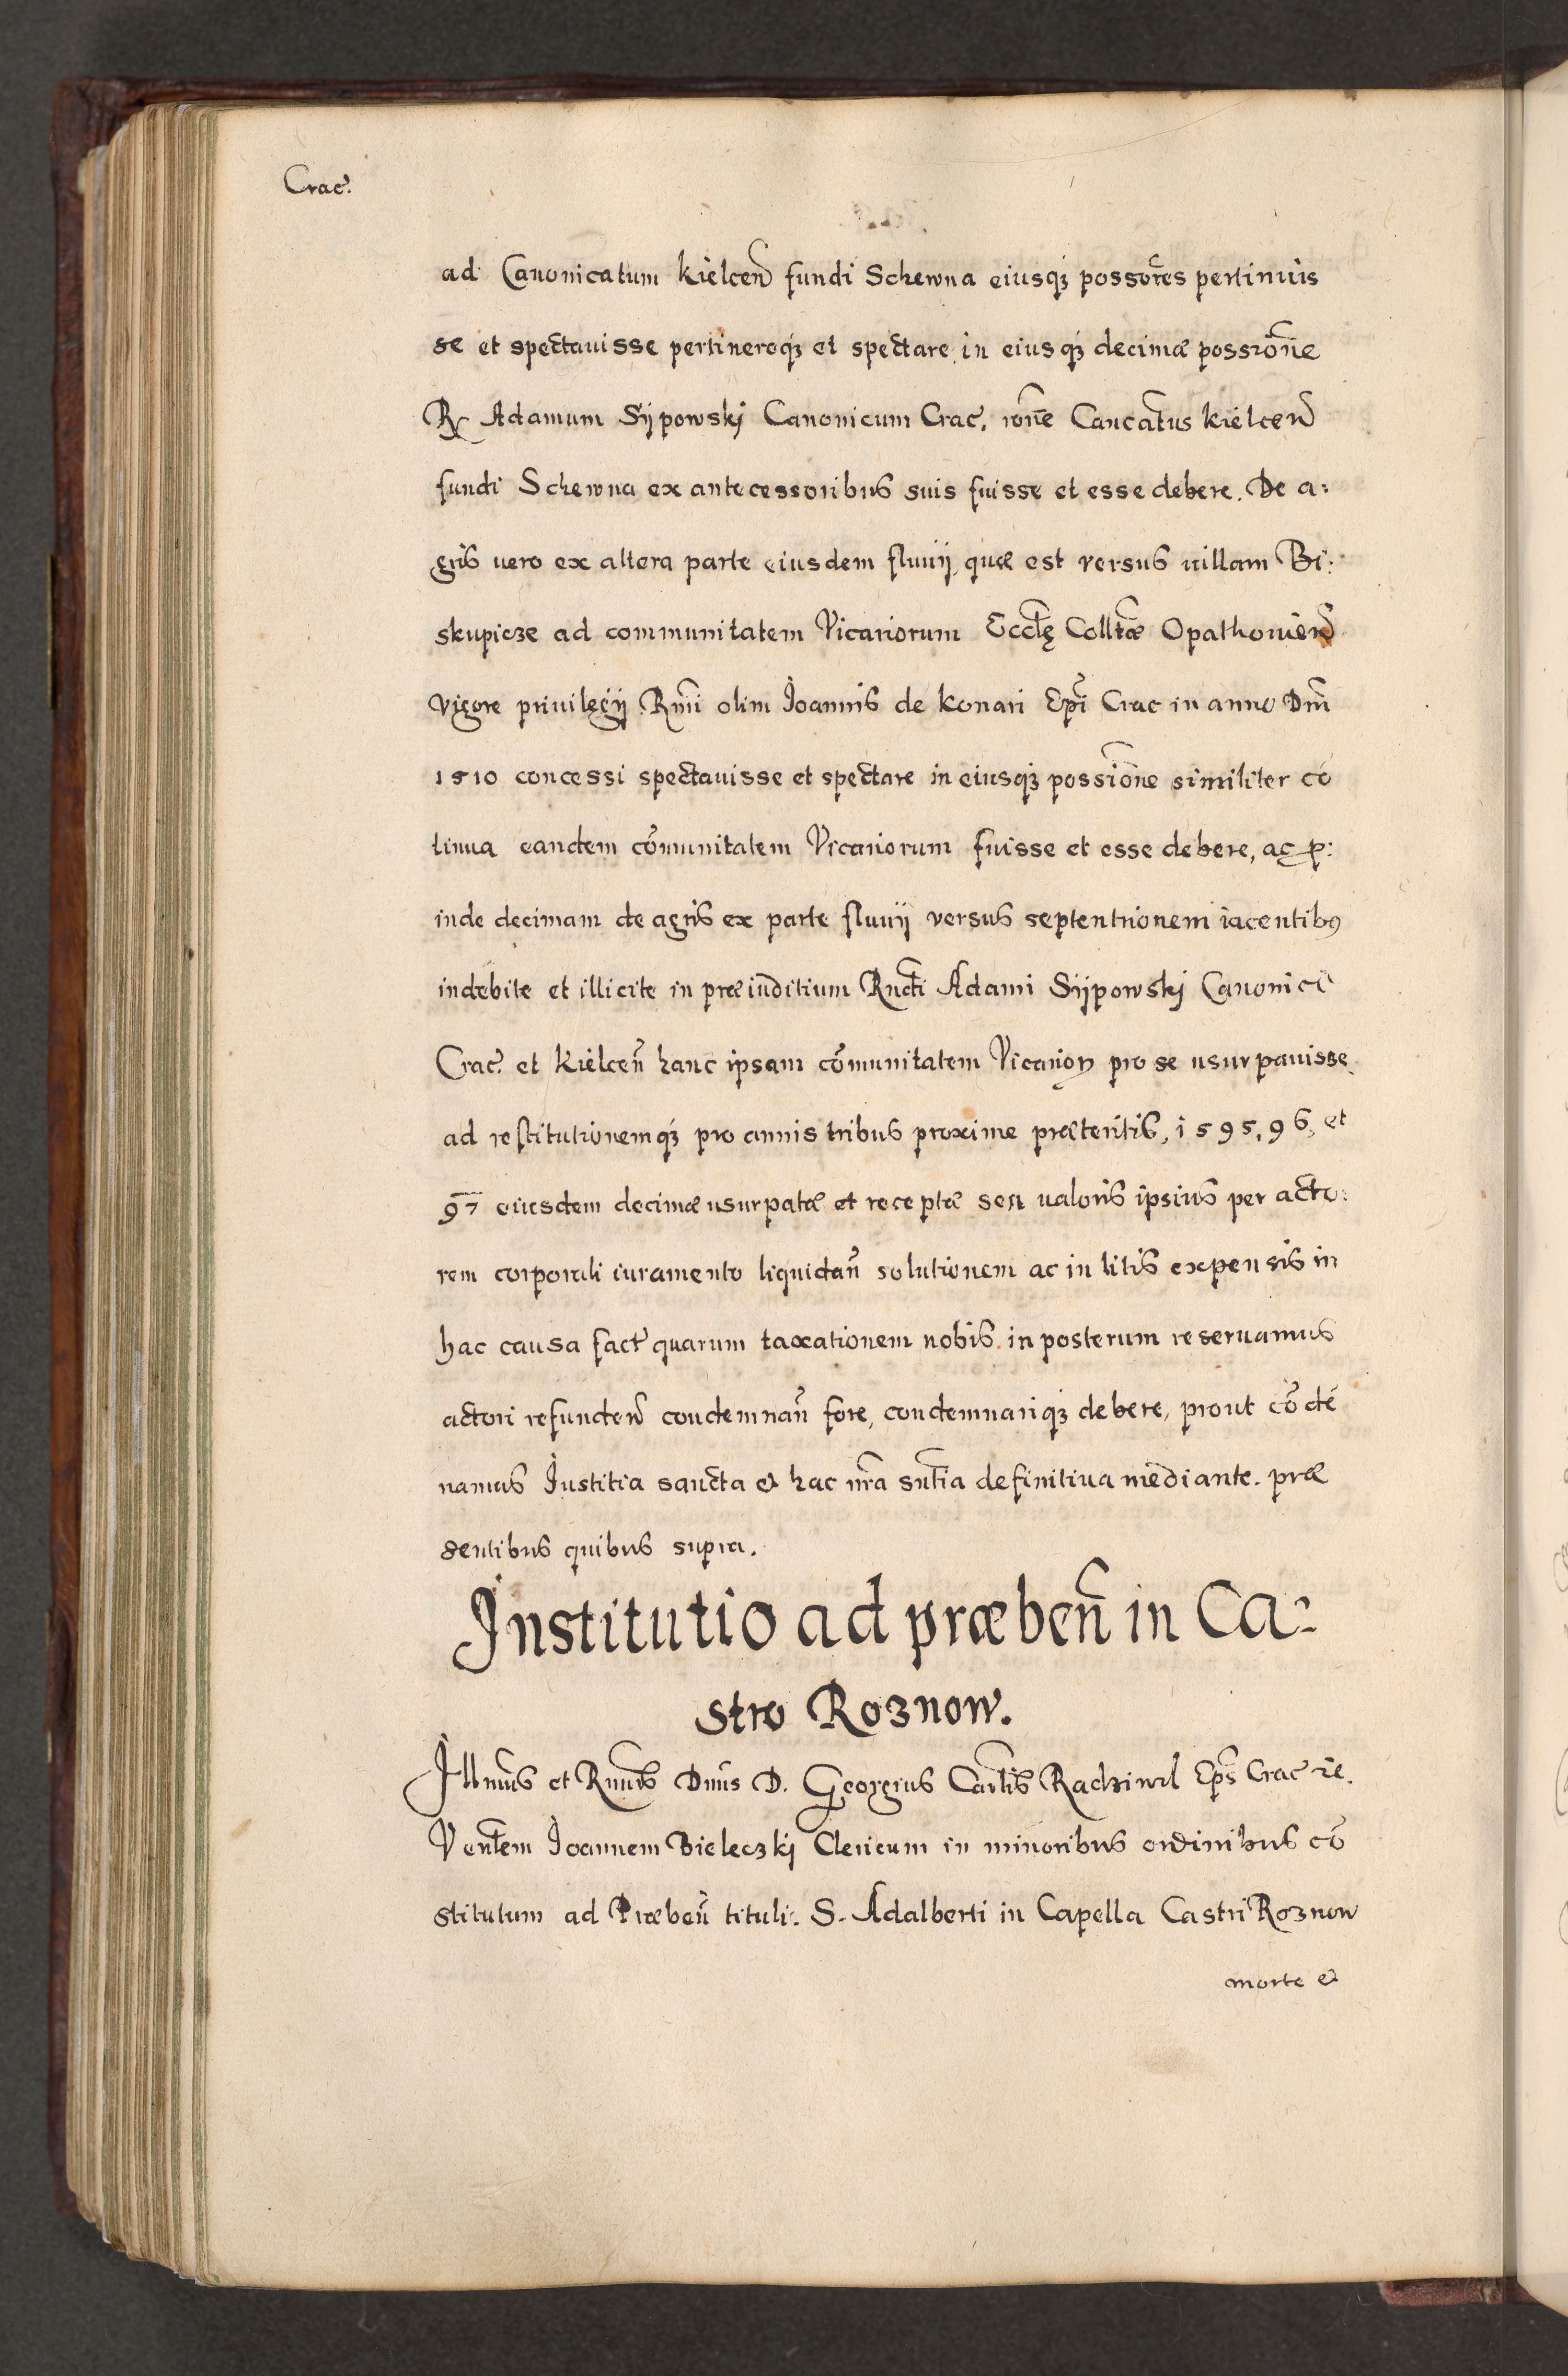 Crac̃.
ad Canonicatum Kielceñ fundi Schewna eiusqꝫ possõres pertinuis
se et spectauisse pertinereqꝫ et spectare in eiusqꝫ decimæ possiõne
R. Adamum Sijpowskj Canonicum Crac̃. rõne Cancãtus Kielceñ
fundi Schewna ex antecessoribus suis fuisse et esse debere. De a:
gris uero ex altera parte eiusdem fluuij, quæ est versus uillam Bi:
skupicze ad communitatem Vicariorum Ecctę̃ Colltæ̃ Opathouień
vigore priuilegij Rm̃i olim Joannis de Konari Ep̃i Crac in anno Dm̃
1510 concessi spectauisse et spectare in eiusqꝫ possiõne similiter cõ
tinua eandem cõmunitatem Vicariorum fuisse et esse debere, ac ꝓ:
inde decimam de agris ex parte fluuij versus septentrionem iacentibꝰ
indebite et illicite in præiuditium Rńdi Adami Sijpowskj Canonici
Crac̃. et Kielceñ hanc ipsam cõmunitatem Vicarioꝝ pro se usurpauisse
ad restitutionemqꝫ pro annis tribus proxime præteritis, 1595, 96, et
97 eiusdem decimæ usurpatæ et receptæ seu ualoris ipsius per acto:
rem corporali iuramento liquidañ solutionem ac in litis expensis in
hac causa fact̃ quarum taxationem nobis in posterum reseruamus
actori refundeñ condemnañ fore, condemnariqꝫ debere, prout cõdẽ
namus Justitia sancta et hac nr̃a sñtia definitiua mediante. præ
sentibus quibus supra.
Institutio ad præbeñ in Ca:
stro Roznow.
Illmũs et Rmũs Dñus D. Georgius Carlĩs Radziwil Ep̃s Crac̃ re.
Venlẽm Joannem Bieleczkj Clericum in minoribus ordinibus cõ
stitutum ad Præbeñ tituli. S. Adalberti in Capella Castri Roznow
morte et